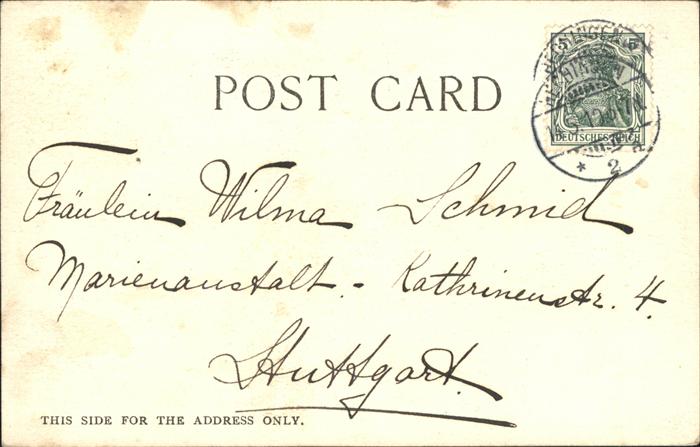 POST CARD
DEUTSCHES REICH
Fräulein Wilma Schmid
Marienanstalt. - Kathrinenstr. 4.
Stuttgart.
THIS SIDE FOR THE ADDRESS ONLY.